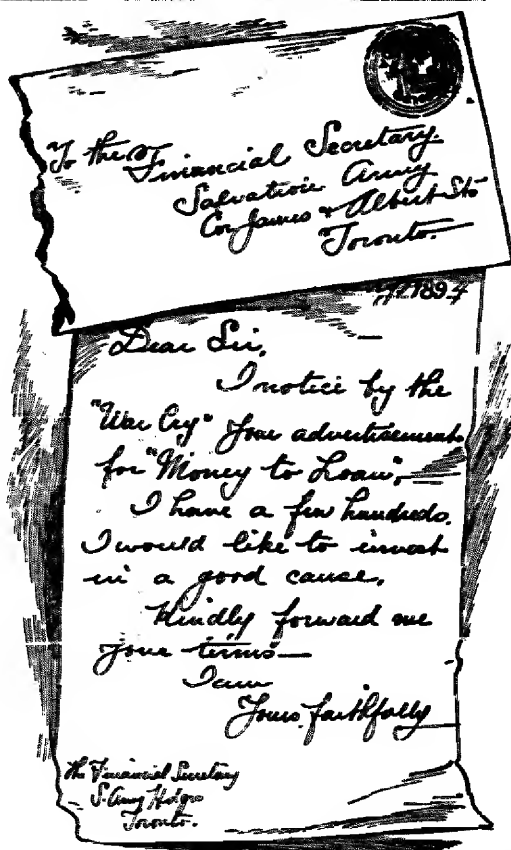 To the Financial Secretary.
Salvation Army
Cor James & Albert Sts
Toronto.
1894
Dear Sir,
I notice by the
"War Cry" your advertisement
for "Money to Loan",
I have a few hundreds.
I would like to invest
in a good cause.
Kindly forward me
your terms—
I am
Yours faithfully
The Financial Secretary
S. Army Hdqrs
Toronto.